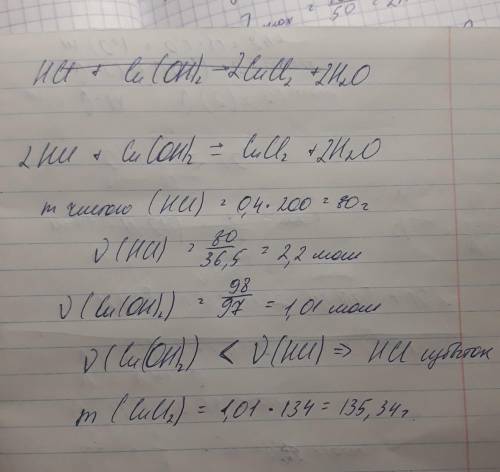 7 max = 100/50 = 2
HCl + Cu(OH)₂ → 2CuCl₂ + 2H₂O
2HCl + Cu(OH)₂ = CuCl₂ + 2H₂O
m чистого (HCl) = 0,4·200 = 80г
ν(HCl) = 80/36,5 = 2,2 моль
ν(Cu(OH)₂) = 98/97 = 1,01 моль
ν(Cu(OH)₂) < ν(HCl) => HCl избыток
m(CuCl₂) = 1,01·134 = 135,34г.